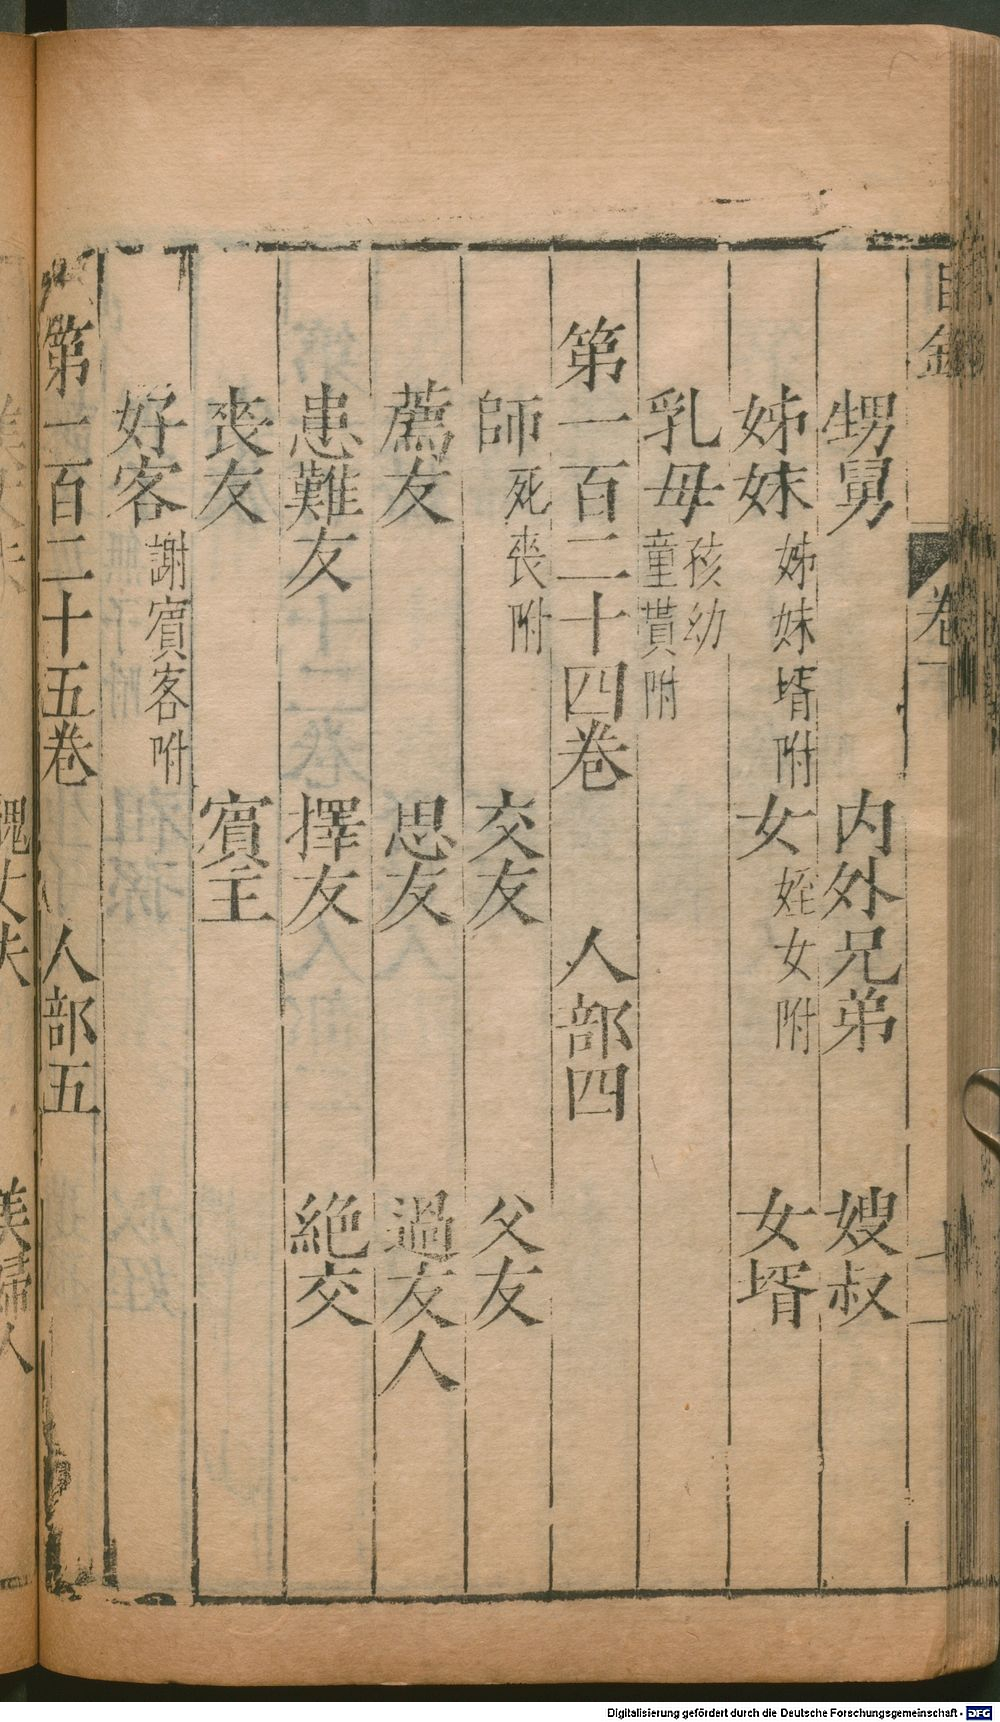 目錄　卷一
甥舅　內外兄弟　嫂叔
姊妹　姊妹壻附　女　姪女附　女壻
乳母　孩幼童蒙附
第一百二十四卷　人部四
師　死喪附　交友　父友
薦友　思友　過友人
患難友　擇友　絕交
喪友　賓主
好客　謝賓客附
第一百二十五卷　人部五
美丈夫　醜丈夫　美婦人
Digitalisierung gefördert durch die Deutsche Forschungsgemeinschaft - DFG